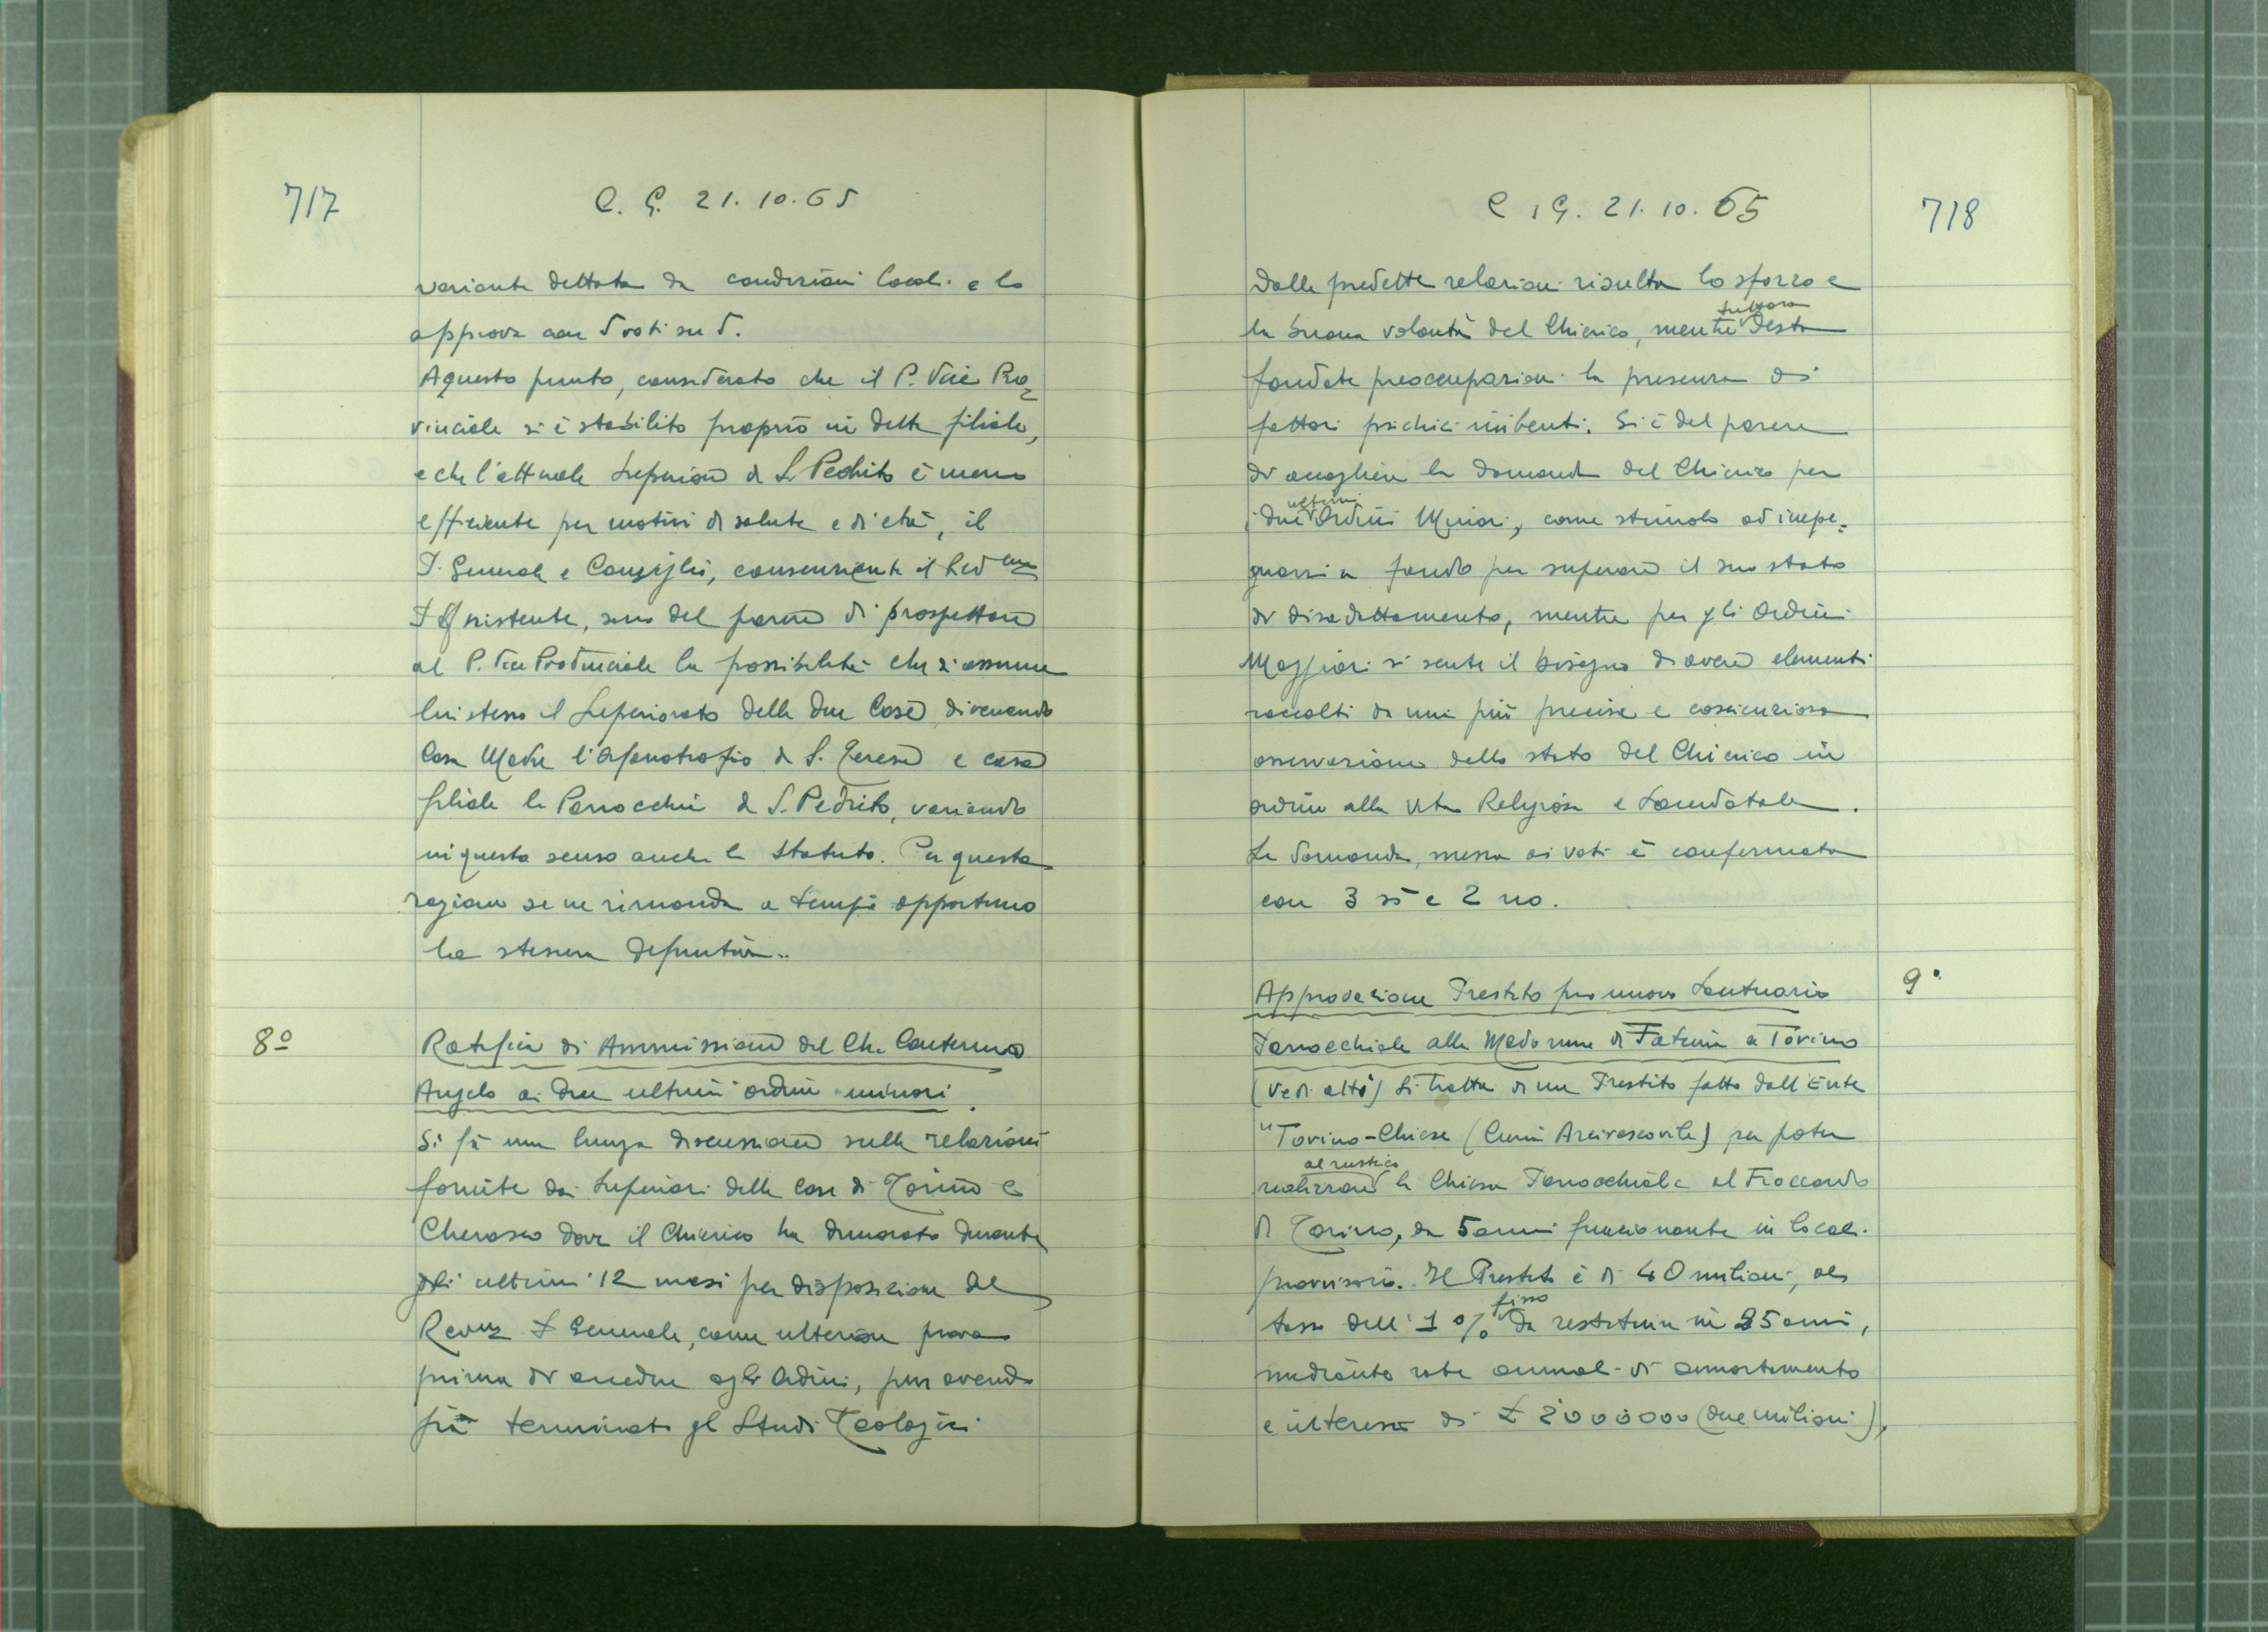 717
C. G. 21. 10. 65
variante dettata da condizioni locali e lo
approva con 5 voti su 5.
A questo punto, considerato che il P. Vice Pro=
vinciale si è stabilito proprio in detta filiale,
e che l'attuale Superiore di S. Pedrito è meno
efficiente per motivi di salute e di età, il
P. Generale e Consiglio, consenziente il Rev.mo
P. Assistente, sono del parere di prospettare
al P. Vice Provinciale la possibilità che si assuma
lui stesso il Superiorato delle due Case, divenendo
Casa Madre l'Orfanotrofio di S. Teresa e casa
filiale la Parrocchia di S. Pedrito, variando
in questo senso anche lo Statuto. Per questa
ragione se ne rimanda a tempo opportuno
la stesura definitiva.
8º
Ratifica di Ammissione del Ch. Conterno
Angelo ai due ultimi ordini minori.
Si fa una lunga discussione sulle relazioni
fornite dai Superiori delle Case di Torino e
Cherasco dove il Chierico ha dimorato durante
gli ultimi 12 mesi per disposizione del
Rev.mo P. Generale, come ulteriore prova
prima di accedere agli Ordini, pur avendo
già terminato gli Studi Teologici
C. G. 21. 10. 65
718
Dalle predette relazioni risulta lo sforzo e
tuttora
la buona volontà del Chierico, mentre desta
fondate preoccupazioni la presenza di
fattori psichici inibenti. Si è del parere
di accogliere la domanda del Chierico per
ultimi
i due Ordini Minori, come stimolo ad impe=
gnarsi a fondo per superare il suo stato
di disadattamento, mentre per gli Ordini
Maggiori si sente il bisogno di avere elementi
raccolti da una più precisa e coscienziosa
osservazione dello stato del Chierico in
ordine alla vita Religiosa e Sacerdotale.
La domanda, messa ai voti è confermata
con 3 sì e 2 no.
9º
Approvazione Prestito pro nuovo Santuario
Parrocchiale alla Madonna di Fatima a Torino
(Vedi atti) Si tratta di un Prestito fatto dall'Ente
"Torino-Chiese (Curia Arcivescovile) per poter
al rustico
realizzare la Chiesa Parrocchiale al Fioccardo
di Torino, da 5 anni funzionante in locali
provvisori. Il Prestito è di 40 milioni, al
fisso
tasso dell' 1 % da restituire in 25 anni,
mediante rate annuali di ammortamento
e interessi di £ 2000000 (due milioni),